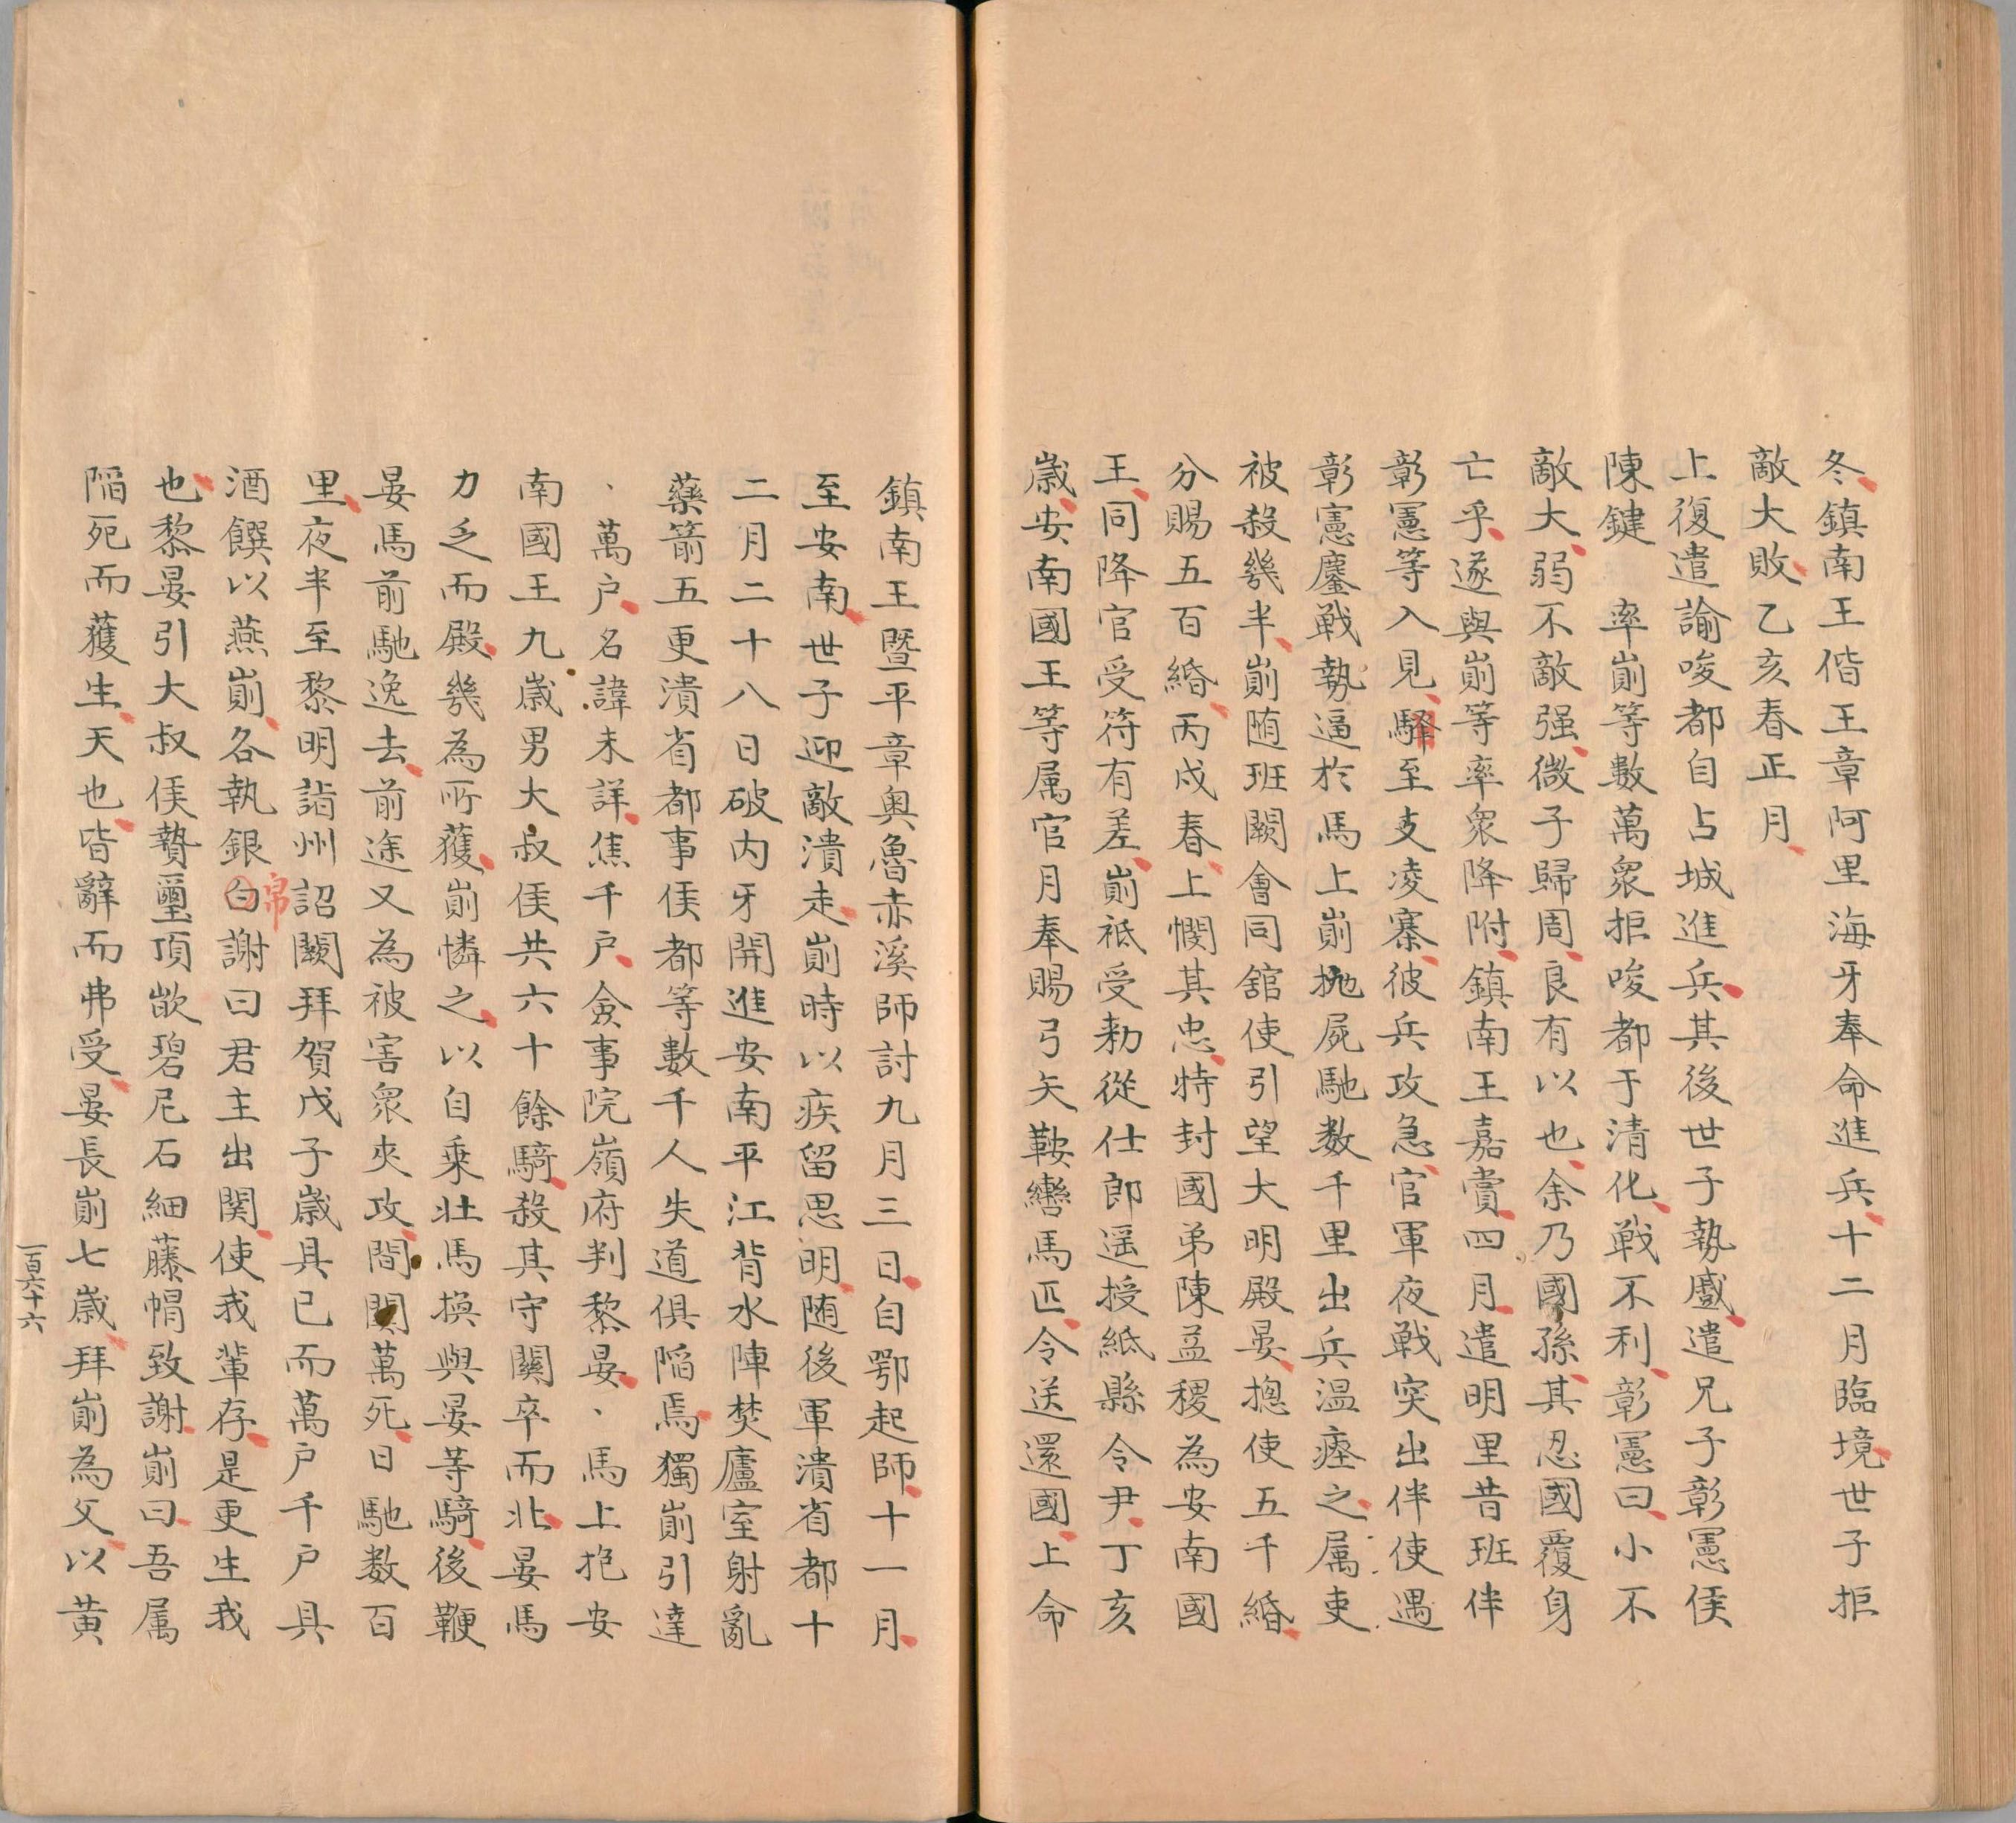 冬鎮南王偕王章阿里海牙奉命進兵十二月臨境世子拒
敵大敗乙亥春正月
上復遣諭唆都自占城進兵其後世子執䘏遣兄子彰憲侯
陳鍵　率崱等數萬衆拒唆都于清化戰不利彰憲曰小不
敵大弱不敵强微子歸周良有以也余乃國孫其忍國覆身
亡乎遂與崱等率衆降附鎮南王嘉賞四月遣明里昔班伴
彰憲等入見驛至支凌寨彼兵攻急官軍夜戰突出伴使遇
彰憲鏖戰勢逼於馬上崱抛屍馳数千里出兵温瘞之属吏
被殺幾半崱随班闕會同舘使引望大明殿晏摠使五千緡
分賜五百緡丙戍春上憫其忠特封國弟陳益稷為安南國
王同降官受符有差崱祗受勑從仕郎遥授紙縣令尹丁亥
歳安南國王等属官月奉賜弓矢鞍轡馬匹令送還國上命
鎮南王暨平章奥魯赤溪師討九月三日自鄂起師十一月
至安南世子迎敵潰走崱時以疾留思明随後軍潰省都十
二月二十八日破内牙開進安南平江背水陣焚廬室射亂
藥箭五更潰省都事侯都等數千人失道俱陷焉獨崱引達
、萬户名諱未詳焦千户僉事院嶺府判黎晏、馬上抱安
南國王九歳男大叔侯共六十餘騎殺其守關卒而北晏馬
力乏而殿幾為所獲崱憐之以自乗壮馬換與晏等騎後鞭
晏馬前馳逸去前途又為被害衆夾攻間關萬死日馳数百
里夜半至黎明詣州詔闕拜賀戊子歳具已而萬户千户具
酒饌以燕崱各執銀白帛謝曰君主出関使我輩存是更生我
也黎晏引大叔侯贄璽項歆碧尼石細藤帽致謝崱曰吾属
陷死而獲生天也皆辭而弗受晏長崱七歳拜崱為父以黄
一百六十六